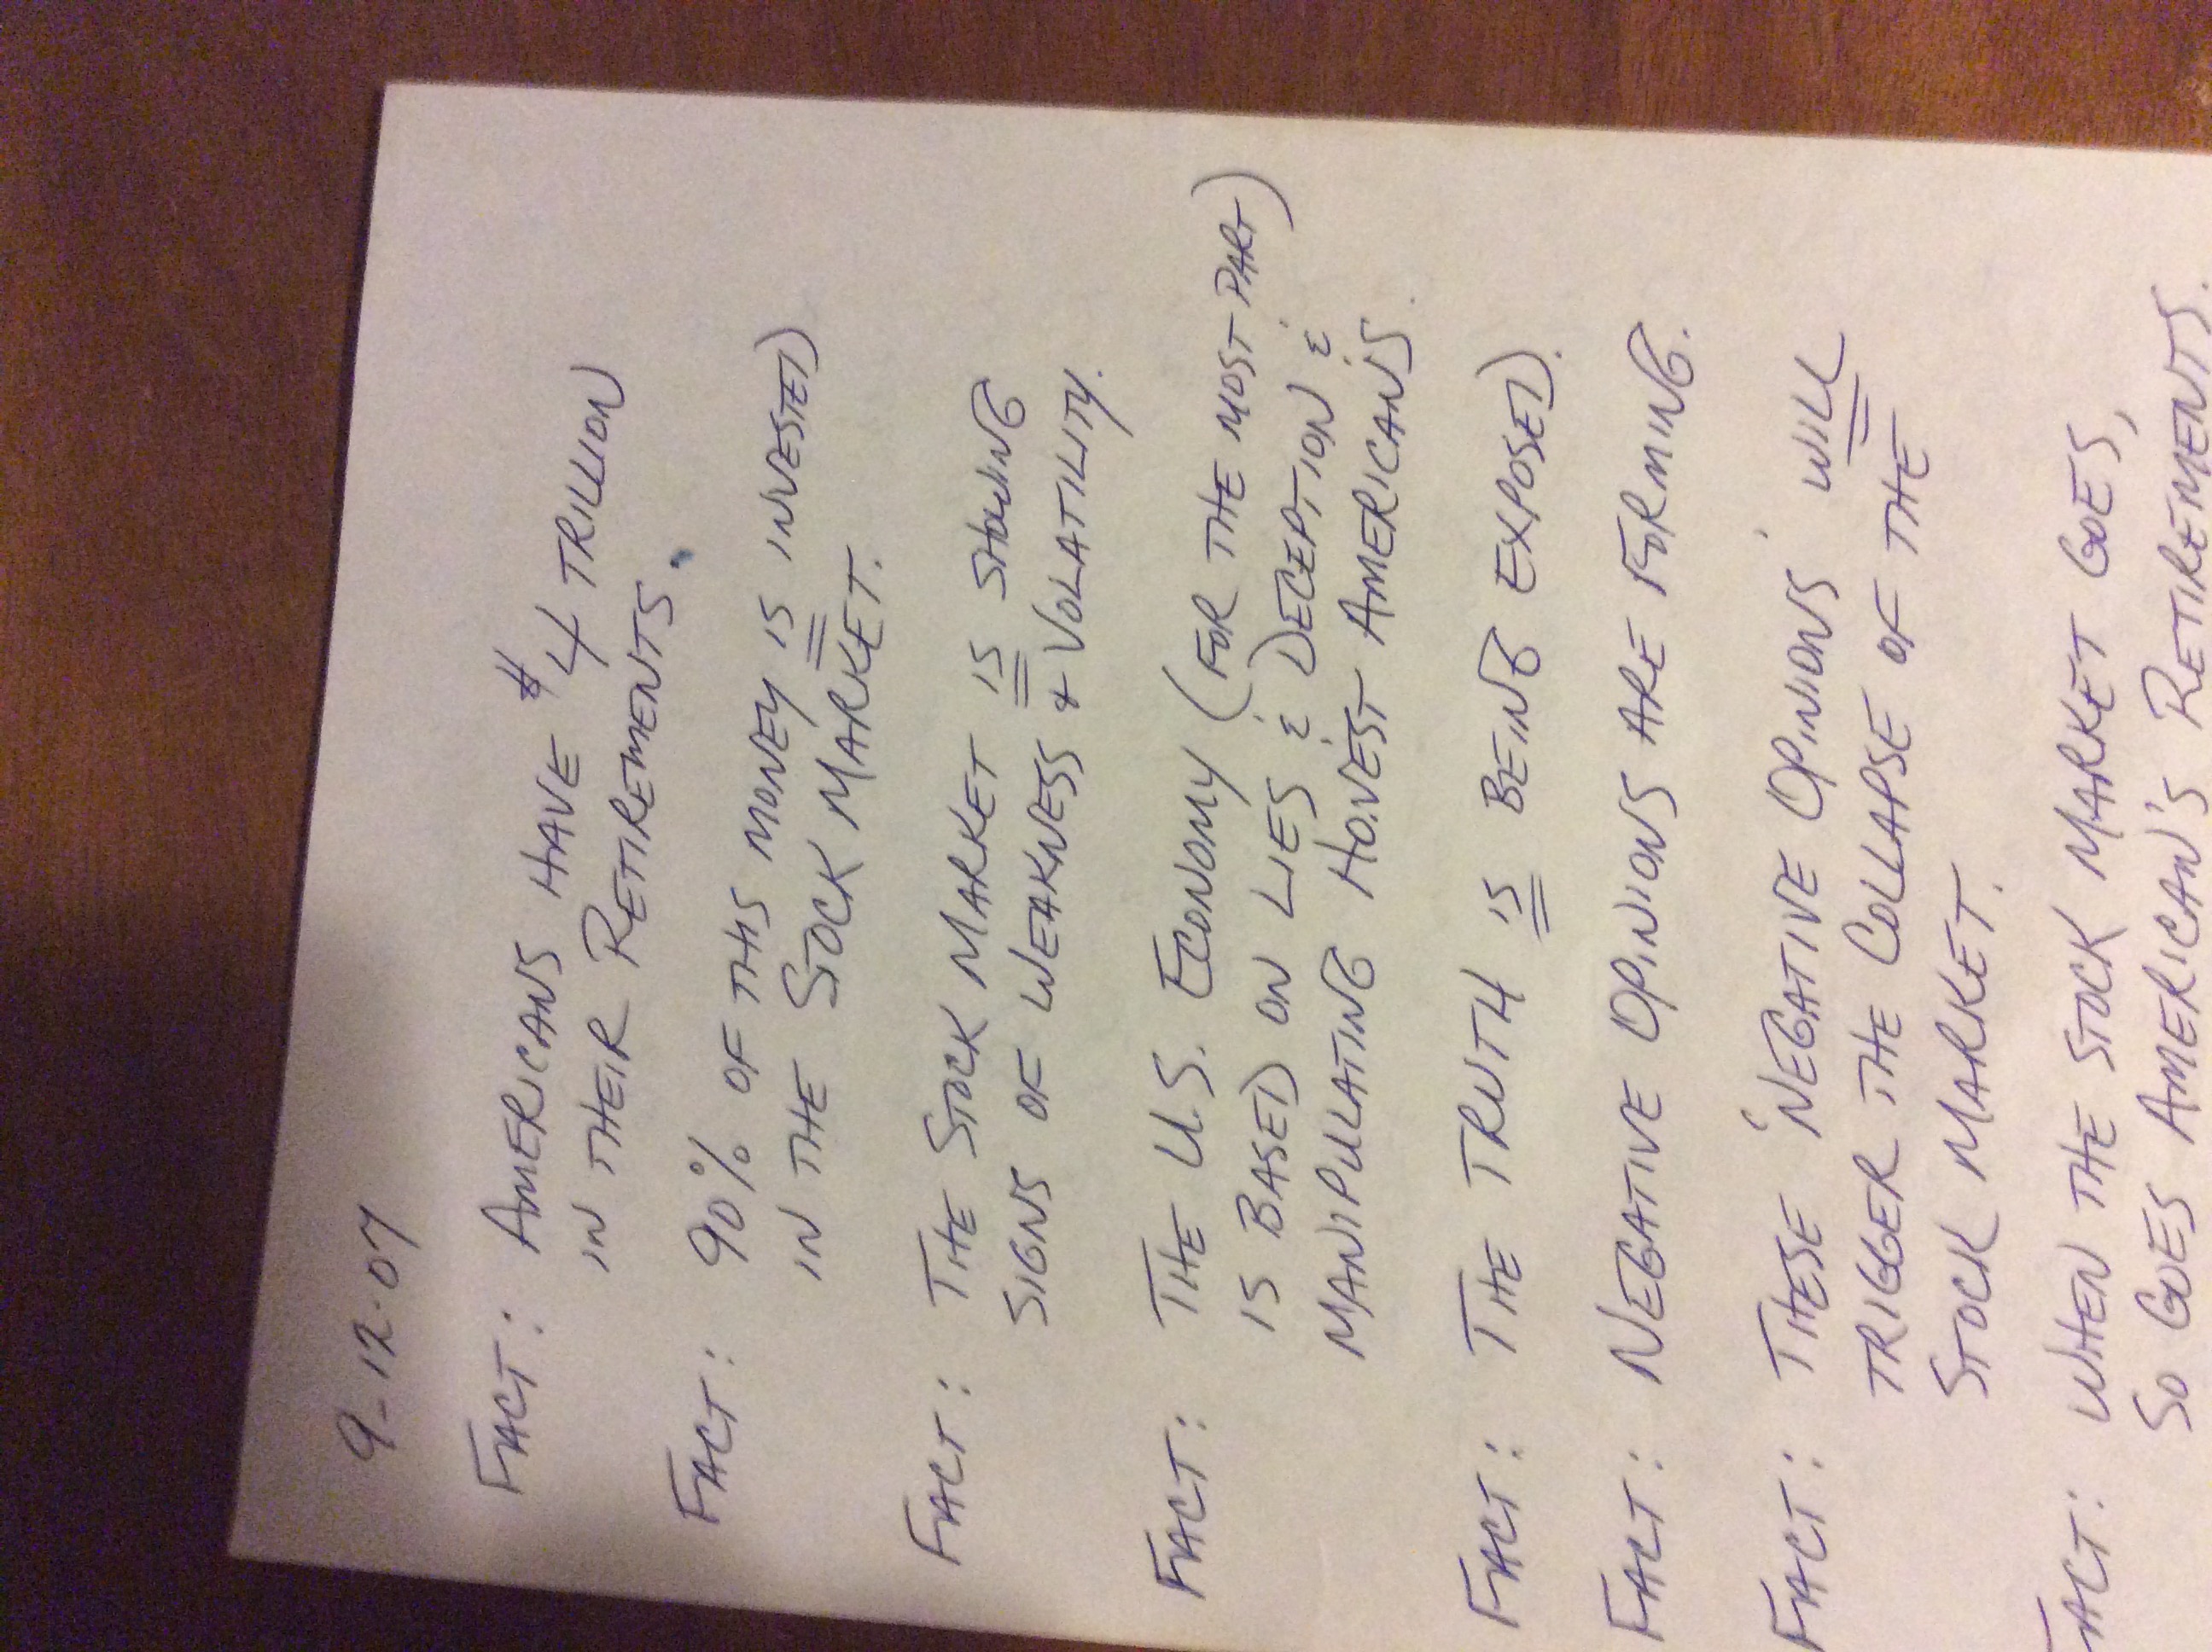 9-12-07
FACT: AMERICANS HAVE $4 TRILLION
IN THEIR RETIREMENTS.
FACT: 90% OF THIS MONEY IS INVESTED
IN THE STOCK MARKET.
FACT: THE STOCK MARKET IS SHOWING
SIGNS OF WEAKNESS + VOLATILITY.
FACT: THE U.S. ECONOMY (FOR THE MOST PART)
IS BASED ON LIES & DECEPTION &
MANIPULATING HONEST AMERICANS.
FACT: THE TRUTH IS BEING EXPOSED.
FACT: NEGATIVE OPINIONS ARE FORMING.
FACT: THESE 'NEGATIVE OPINIONS' WILL
TRIGGER THE COLLAPSE OF THE
STOCK MARKET.
FACT: WHEN THE STOCK MARKET GOES,
SO GOES AMERICAN'S RETIREMENTS.